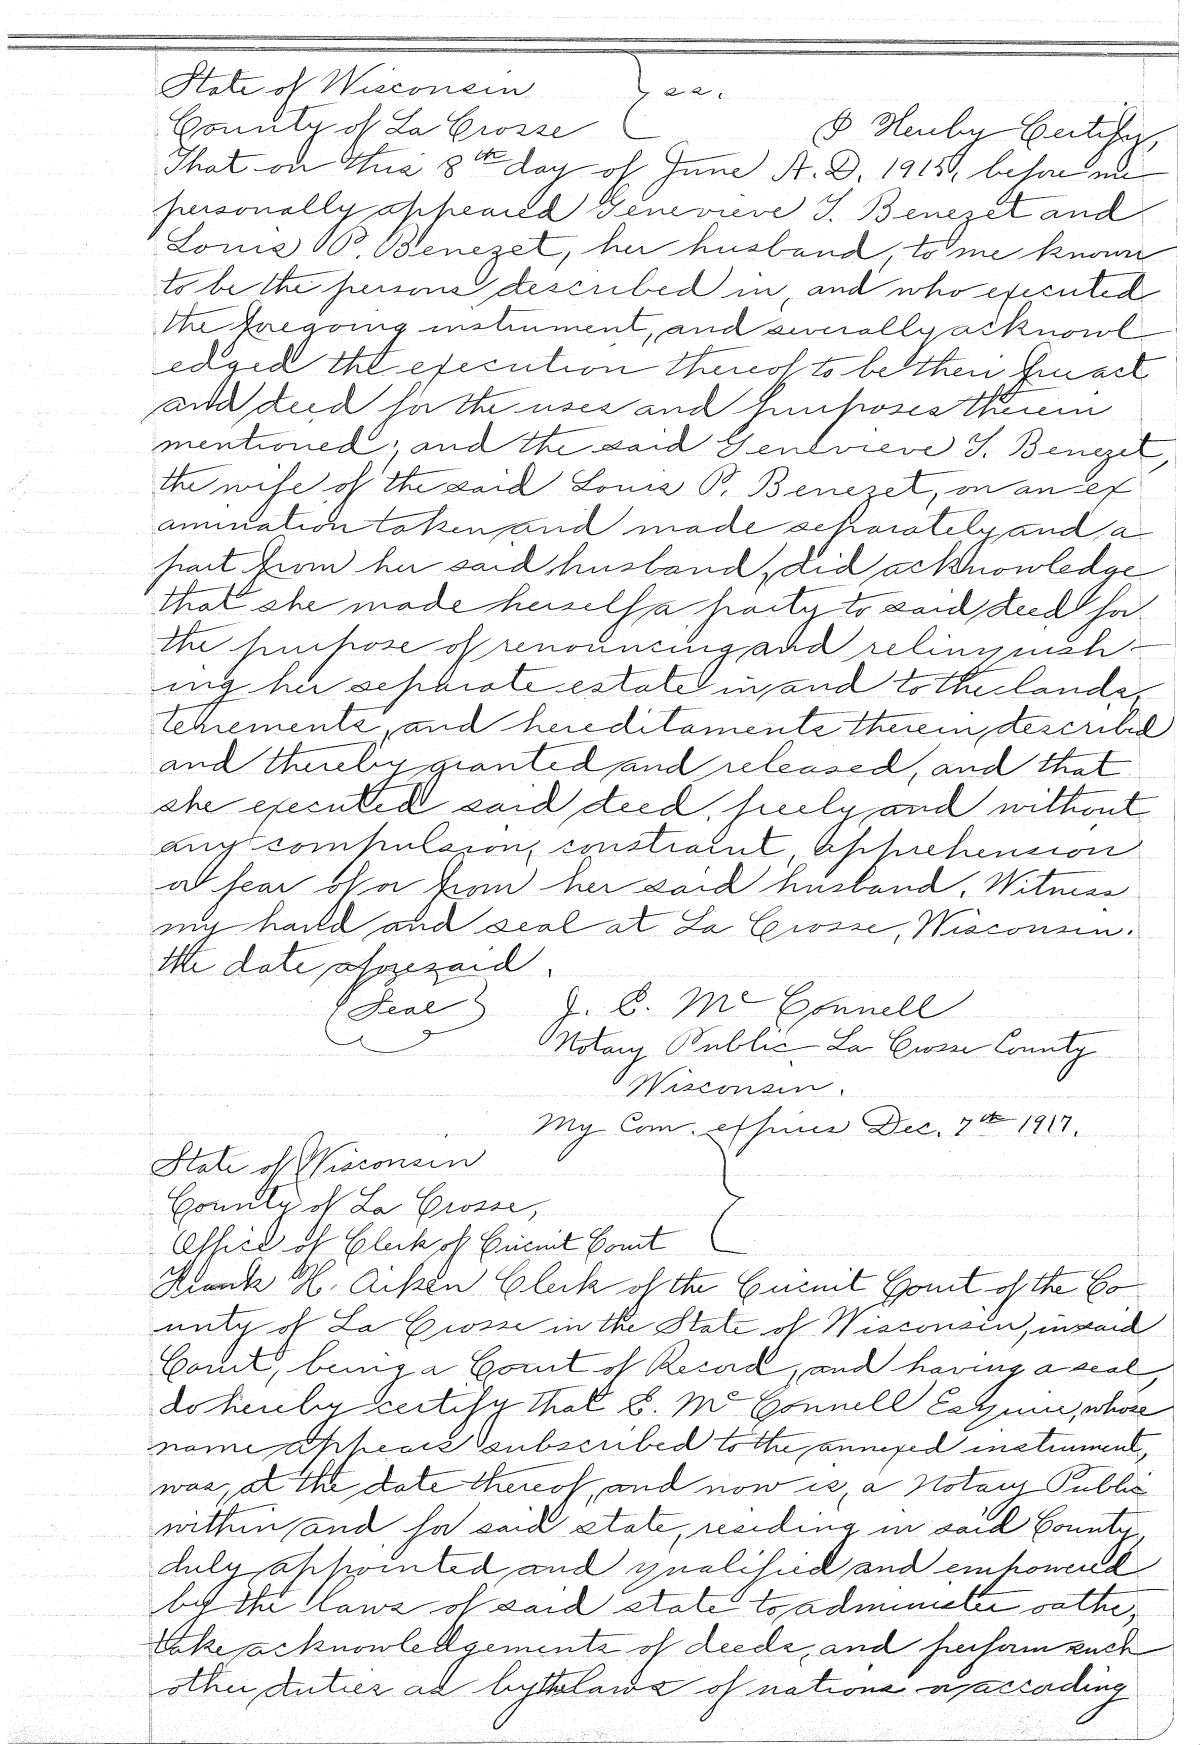 State of Wisconsin } ss.
County of La Crosse I Hereby Certify,
That on this 8th day of June A.D. 1915, before me
personally appeared Genevieve T. Benezet and
Louis P. Benezet, her husband, to me known
to be the persons described in, and who executed
the foregoing instrument, and severally acknowl
edged the execution thereof to be their free act
and deed for the uses and purposes therein
mentioned; and the said Genevieve T. Benezet,
the wife of the said Louis P. Benezet, on an ex
amination taken and made separately and a
part from her said husband, did acknowledge
that she made herself a party to said deed for
the purpose of renouncing and relinquish-
ing her separate estate in and to the lands,
tenements, and hereditaments therein described
and thereby granted and released, and that
she executed said deed, freely and without
any compulsion, constraint, apprehension
or fear of or from her said husband. Witness
my hand and seal at La Crosse, Wisconsin.
the date aforesaid.
(Seal) J. E. McConnell
Notary Public La Crosse County
Wisconsin.
My Com. expires Dec. 7th 1917.
State of Wisconsin
County of La Crosse,
Office of Clerk of Circuit Court
Frank H. Aiken Clerk of the Circuit Court of the Co
unty of La Crosse in the State of Wisconsin, in said
Court, being a Court of Record, and having a seal,
do hereby certify that E. McConnell Esquire, whose
name appears subscribed to the annexed instrument,
was, at the date thereof, and now is, a Notary Public
within and for said state, residing in said County,
duly appointed and qualified and empowered
by the laws of said state to administer oaths,
take acknowledgements of deeds, and perform such
other duties as by the laws of nations or according